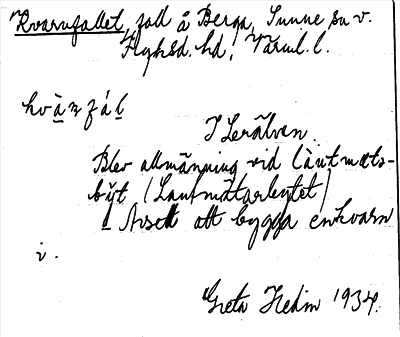 Kvarnfallet, fall å Berga, Sunne sn v.
Flyksd. hd, Värml. l.
hvà̱ɳfál̲
I Lerälven.
Blev allmänning vid làntmäts-
být (Lantmätarbytet)
- Avsett att bygga en kvarn
i.
Greta Hedin 1934.